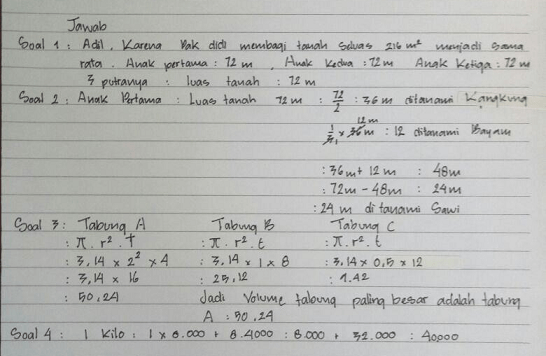 Jawab
Soal 1 : Adil . Karena Pak didi membagi tanah seluas 216 m² menjadi sama
rata . Anak pertama : 72 m , Anak Kedua : 72 m Anak Ketiga : 72 m
3 putranya : luas tanah : 72 m
Soal 2 : Anak Pertama : Luas tanah 72 m : 72/2 : 36 m ditanami Kangkung
12 m
1/3 x 36 m : 12 ditanami Bayam
: 36 m + 12 m : 48 m
: 72 m - 48 m : 24 m
: 24 m ditanami Sawi
Soal 3 : Tabung A Tabung B Tabung C
: π . r² . t : π . r² . t : π . r² . t
: 3,14 x 2² x 4 : 3,14 x 1 x 8 : 3,14 x 0,5 x 12
: 3,14 x 16 : 25,12 : 9.42
: 50,24 Jadi Volume tabung paling besar adalah tabung
A : 50,24
Soal 4 : 1 Kilo : 1 x 8.000 + 8.4000 : 8.000 + 32.000 : 40000